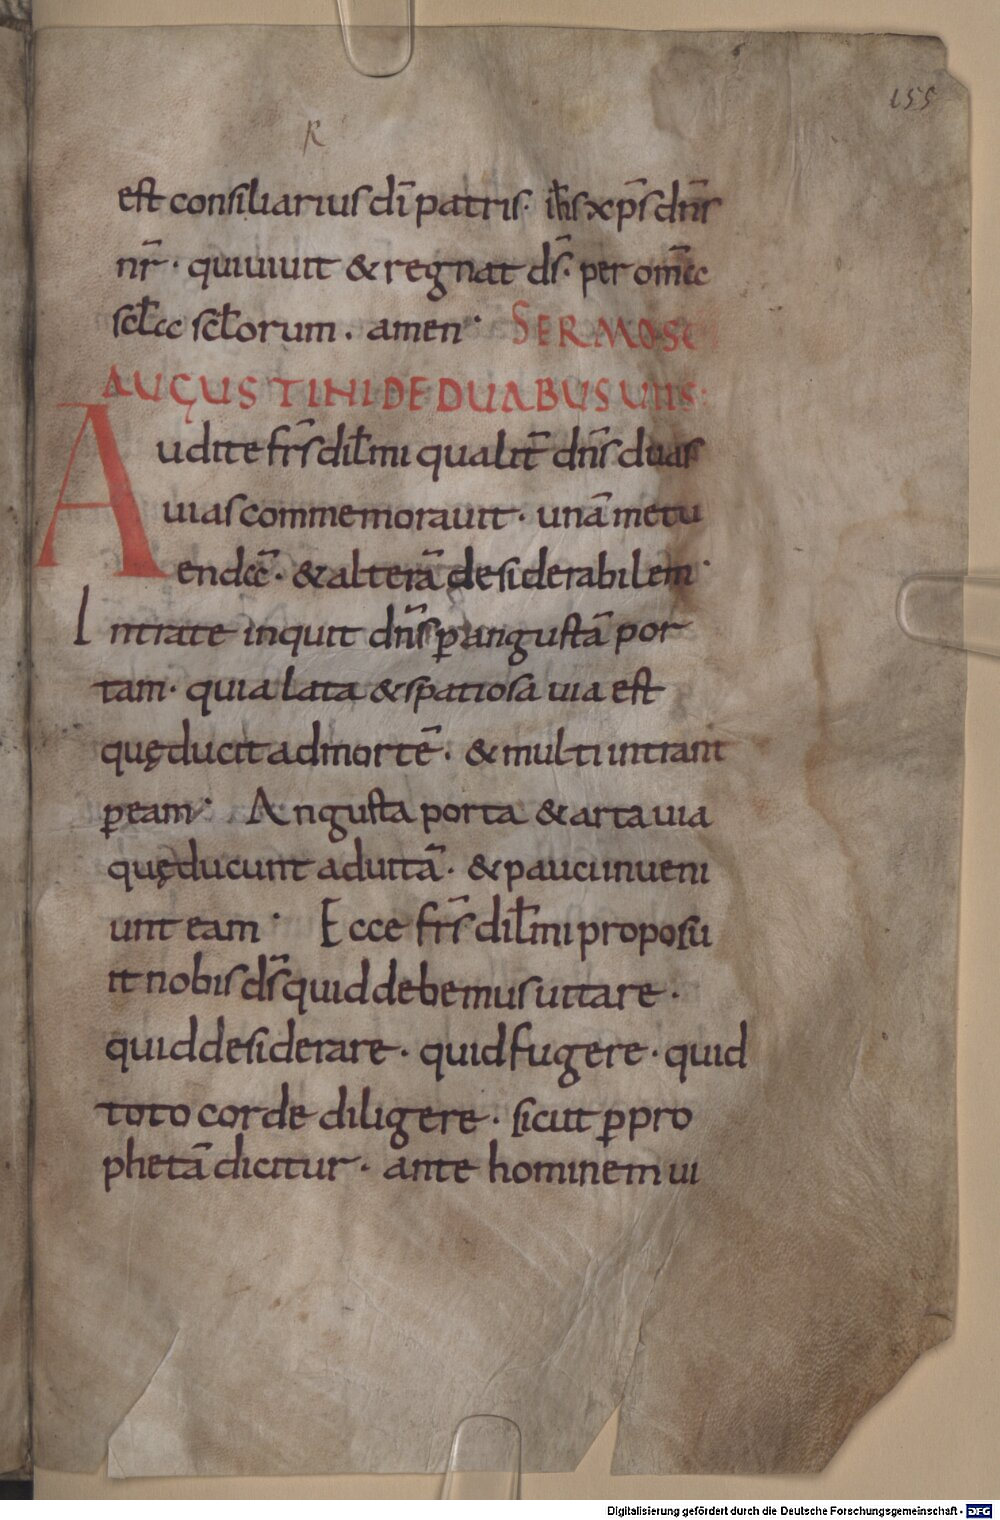 155
R
est consiliarius dī patris· ih̄s xp̄s dn̄s
nr̄· qui uiuit & regnat ds̄· per om̄cc
scl̄cc scl̄orum· amen· SERMO SC̄
AUGUSTINI DE DUABUS UIIS:
Audite fr̄s dil̄mi qualit̄ dn̄s duas
uias commemorauit· unā metu
endcc̄· & alterā desiderabilem·
Intrate inquit dn̄s ꝑ angustā por
tam· quia lata & spatiosa uia est
quę ducit ad mortē· & multi intrant
ꝑ eam· Angusta porta & arta uia
quę ducunt ad uitā· & pauci inueni
unt eam· Ecce fr̄s dil̄mi proposu
it nobis ds̄ quid debemus uitare·
quid desiderare· quid fugere· quid
toto corde diligere· sicut ꝑ pro
phetā dicitur· ante hominem ui
Digitalisierung gefördert durch die Deutsche Forschungsgemeinschaft - DFG